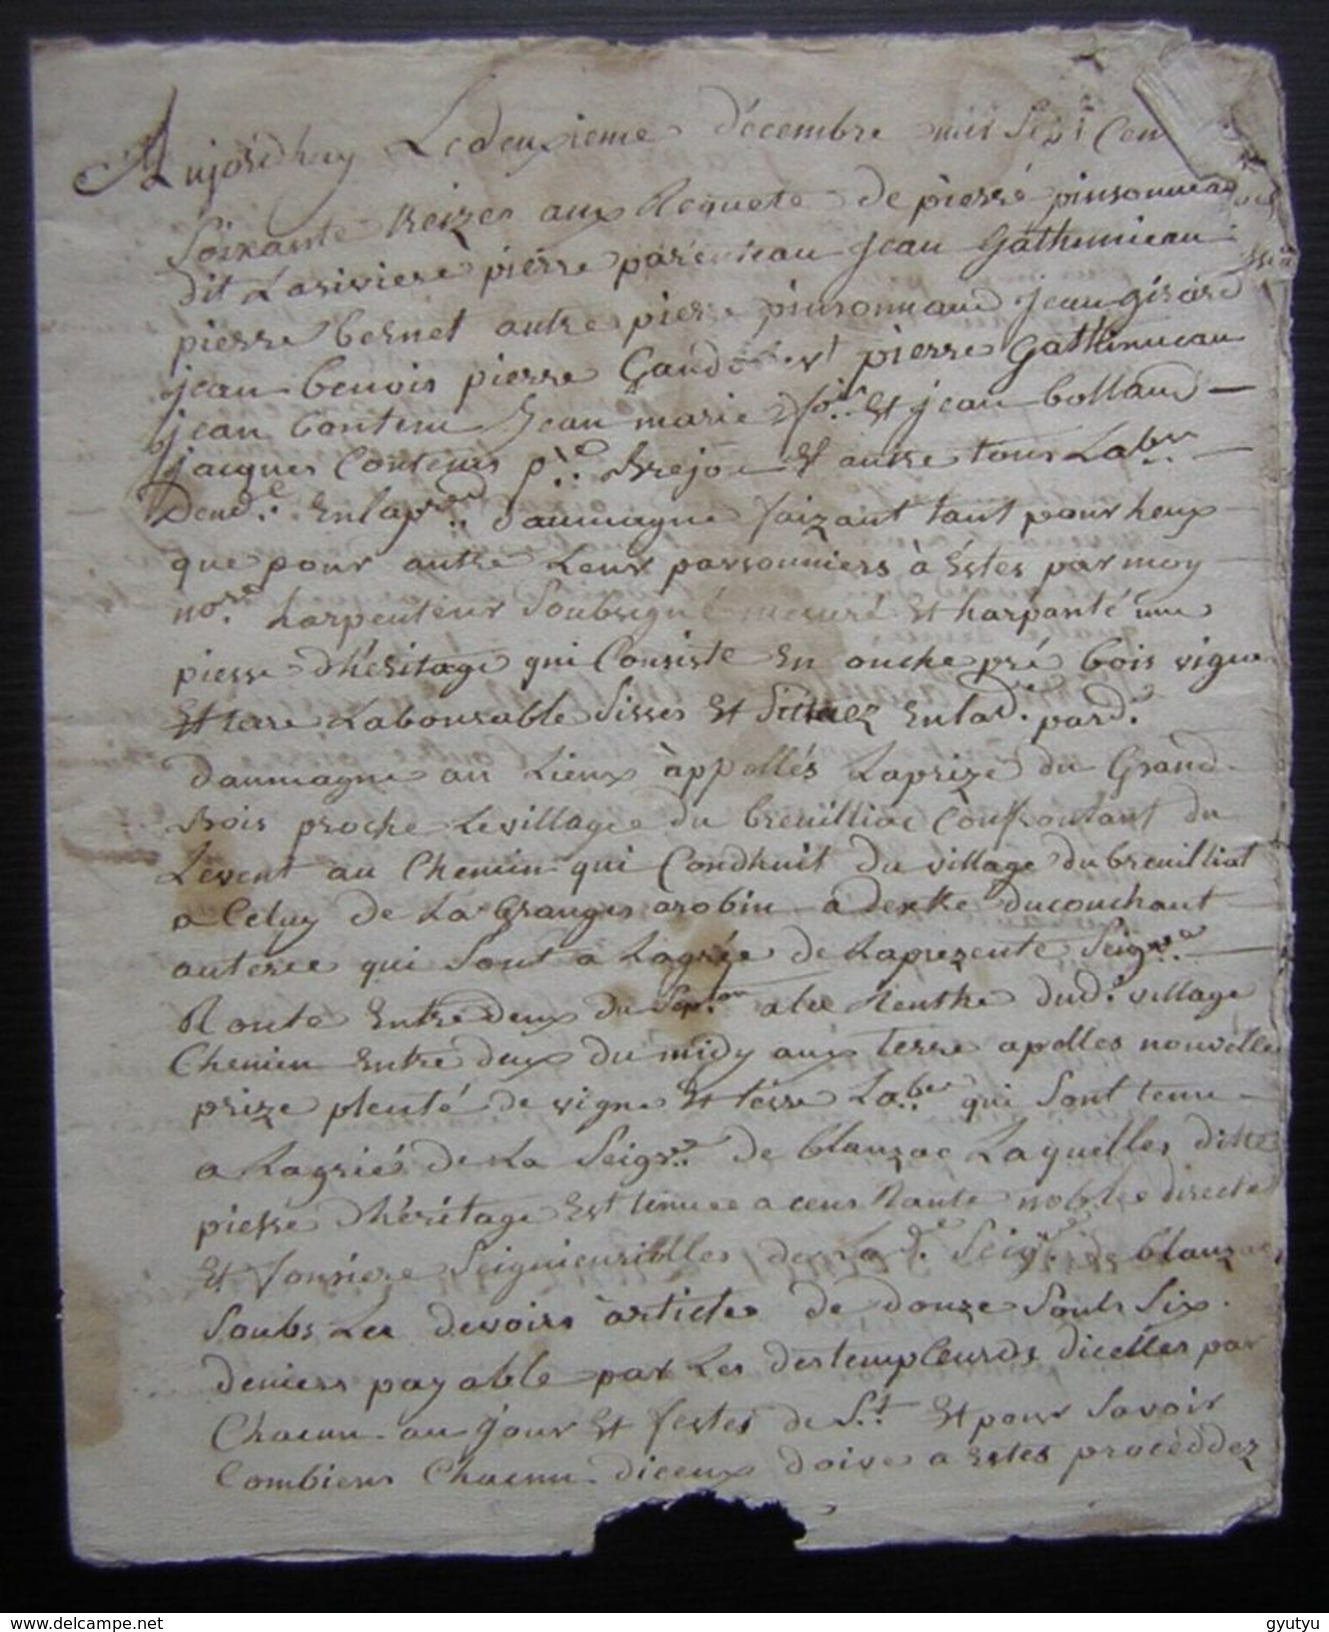 Aujordhuy Ledeuxieme décembre mil Sept Cent
Soixante treize aux Requete de pierre pinsonneau
dit Lariviere pierre pareneau Jean Gathinieau
pierre bernet autre pierre pinsonnaud Jean girard
jean benois pierre pierre Gathinueau
jean Contem Jean marie Et jean bolland
jacques Contems p.re Brejon Et autre tous Lab.rs
Dem.t Enlap.sse daumagne faizant tant pour heux
que pour autre Leur parsonniers à Estes par moy
no.re harpenteur Soubsigné mesuré Et harpanté une
piesse dhéritage qui Consiste En ouche pré bois vigne
Et tere Labourable Sisses Et Situez Enlad. par.d
daumagne au Lieux àppellés Laprize du Grand
Bois proche Levillage du breuilliac Confrontant du
Levent au Chemin qui Condhuit du village du breuilliat
a Celuy de La Grange arobin a dextre du couchant
auteree qui Sont a Lagrée de Laprezente Seign.r
Route Entre deux du Sept.on a Lee Renthe dud. village
Chemin Entre deux du midy aux terre apelles nouvelle
prize plenté de vigne Et terre La.ble qui Sont tenu
a Lagrié de La Seig.r de blanzac Laquelles ditte
piesse dhéritage Est tenuee a cens Rante noble directe
Et fonsiere Seigneurialles de Lad. Seig.r de blanzac
Soubs Les devoirs de douze Souls Six
deniers payable par Les destempteurds dicelles par
Chacun au jour Et festes de S.t Et pour Savoir
Combiens Chacun diceux doive a Estes proceddez
gyutyu
www.delcampe.net